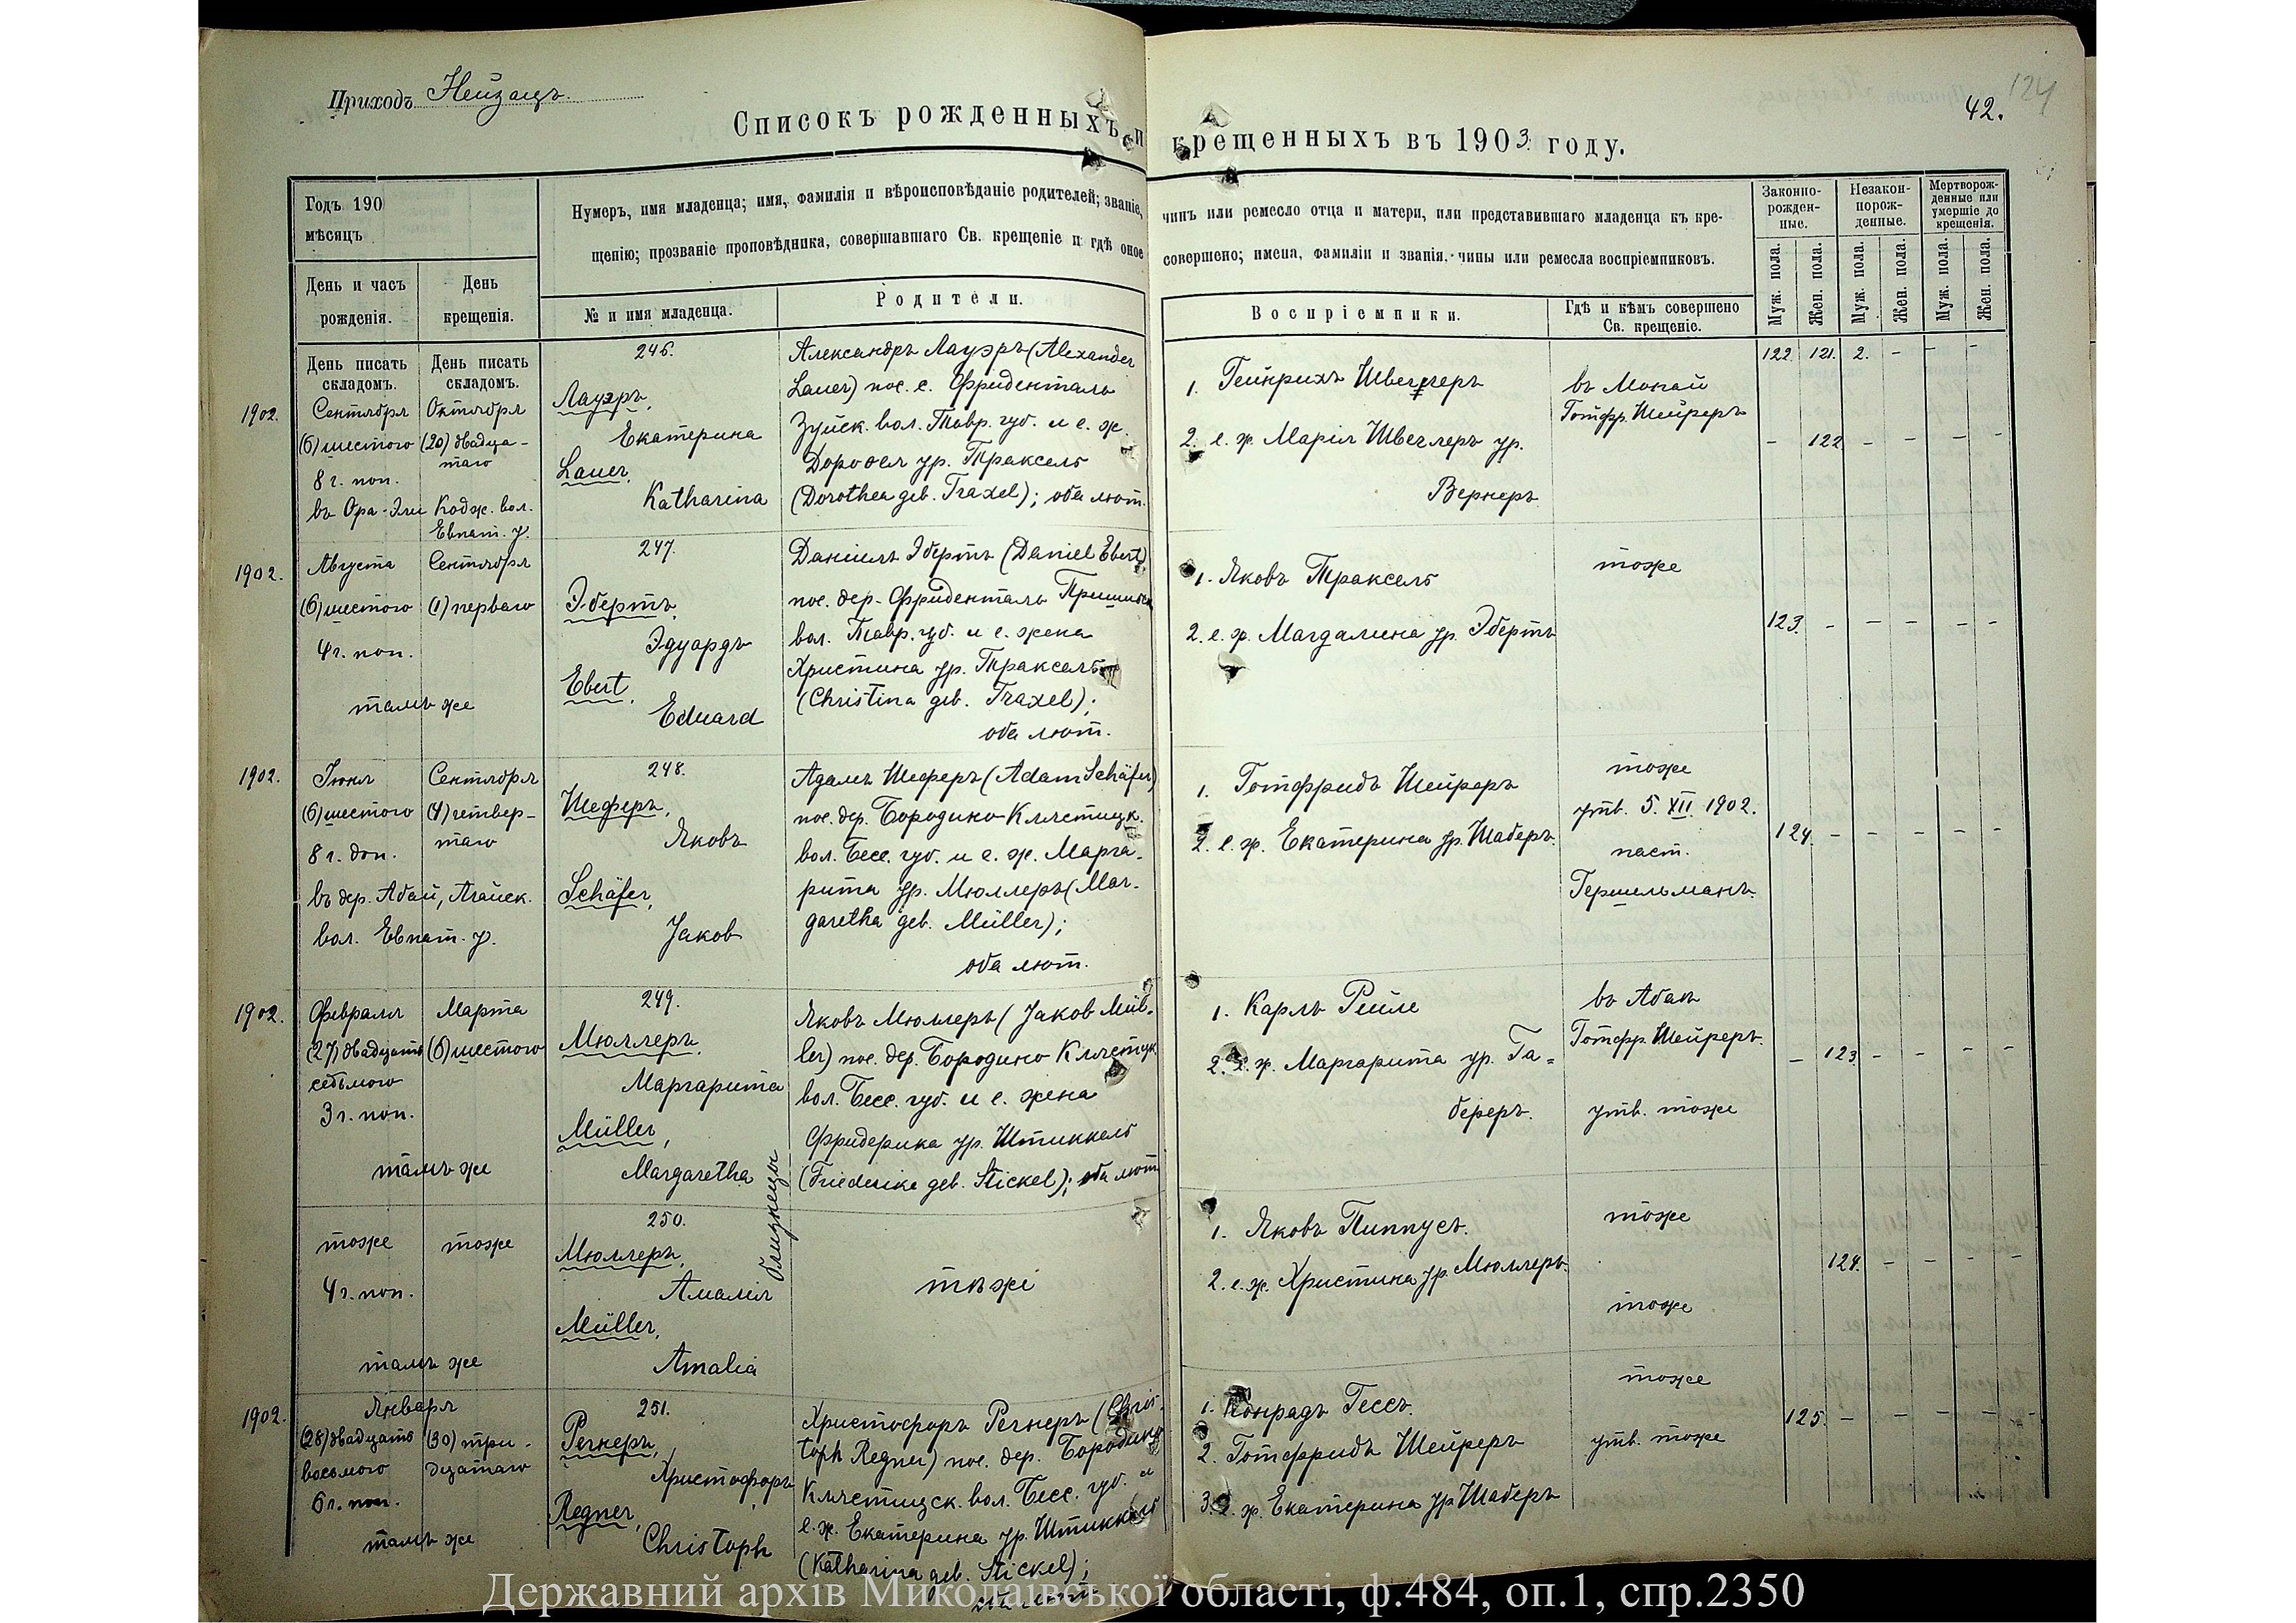 Приходъ Нейзацъ.
124
42.
Списокъ рожденныхъ и крещенныхъ въ 1903 году.
Годъ 190
мѣсяцъ
Нумеръ, имя младенца; имя, фамилія и вѣроисповѣданіе родителей; званіе, чинъ или ремесло отца и матери, или представившаго младенца къ кре-
щенію; прозваніе проповѣдника, совершавшаго Св. крещеніе и гдѣ оное совершено; имена, фамиліи и званія, чины или ремесла воспріемниковъ.
Законно-
рожден-
ные.
Незакон-
норож-
денные.
Мертворож-
денные или
умершіе до
крещенія.
День и часъ
рожденія.
День
крещенія.
№ и имя младенца.
Родители.
Воспріемники.
Гдѣ и кѣмъ совершено
Св. крещеніе.
Муж. пола.
Жен. пола.
Муж. пола.
Жен. пола.
Муж. пола.
Жен. пола.
День писать
складомъ.
День писать
складомъ.
122. 121. 2. - - -
1902.
Сентября
(6) шестого
8 г. поп.
въ Ора-Эли Кодж. вол.
Евпат. у.
Октября
(20) двадца-
таго
246.
Лауэръ,
Екатерина
Lauer,
Katharina
Александръ Лауэръ (Alexander
Lauer) пос. с. Фриденталь
Зуйск. вол. Тавр. губ. и е. ж.
Доротея ур. Траксель
(Dorothea geb. Traxel); оба лют.
1. Гейнрихъ Швеглеръ
2. е. ж. Марія Швеглеръ ур.
Вернеръ
въ Монай
Готфр. Шейреръ
- 122 - - - -
1902.
Августа
(6) шестого
4 г. поп.
тамъ же
Сентября
(1) перваго
247.
Эбертъ,
Эдуардъ
Ebert,
Eduard
Даніилъ Эбертъ (Daniel Ebert)
пос. дер. Фриденталь
вол. Тавр. губ. и е. жена
Христина ур. Траксель
(Christina geb. Traxel);
оба лют.
1. Яковъ Траксель
2. е. ж. Магдалина ур. Эбертъ
тоже
123. - - - - -
1902.
Іюня
(6) шестого
8 г. доп.
въ дер. Абай, Агайск.
вол. Евпат. у.
Сентября
(4) четвер-
таго
248.
Шеферъ,
Яковъ
Schäfer,
Jakob
Адамъ Шеферъ (Adam Schäfer)
пос. дер. Бородино Клястицк.
вол. Бесс. губ. и е. ж. Марга-
рита ур. Мюллеръ (Mar-
garetha geb. Müller);
оба лют.
1. Готфридъ Шейреръ
2. е. ж. Екатерина ур. Шаберъ.
тоже
утв. 5. XII. 1902.
паст.
Гершельманъ.
124. - - - - -
1902.
Февраля
(27) двадцать
седьмого
3 г. поп.
тамъ же
Марта
(6) шестого
249.
Мюллеръ,
Маргарита
Müller,
Margaretha
близнецы
Яковъ Мюллеръ (Jakob Mül-
ler) пос. дер. Бородино Клястицк
вол. Бесс. губ. и е. жена
Фридерика ур. Штиккель
(Friederike geb. Stickel); оба лют
1. Карлъ Рейле
2. е. ж. Маргарита ур. Га-
береръ.
въ Абай
Готфр. Шейреръ.
утв. тоже
- 123. - - - -
тоже
4 г. поп.
тамъ же
тоже
250.
Мюллеръ,
Амалія
Müller,
Amalia
тѣже
1. Яковъ Пиппусъ.
2. е. ж. Христина ур. Мюллеръ.
тоже
тоже
124. - - - -
1902.
Января
(28) двадцать
восьмого
6 г. поп.
тамъ же
(30) три-
дцатаго
251.
Регнеръ,
Христофоръ
Regner,
Christoph
Христофоръ Регнеръ (Chris-
toph Regner) пос. дер. Бородино
Клястицск. вол. Бесс. губ. и
е. ж. Екатерина ур. Штиккель
(Katharina geb. Stickel);
оба лют.
1. Конрадъ Гессъ.
2. Готфридъ Шейреръ
3. е. ж. Екатерина ур. Шаберъ
тоже
утв. тоже
125. - - - - -
Державний архів Миколаївської області, ф.484, оп.1, спр.2350